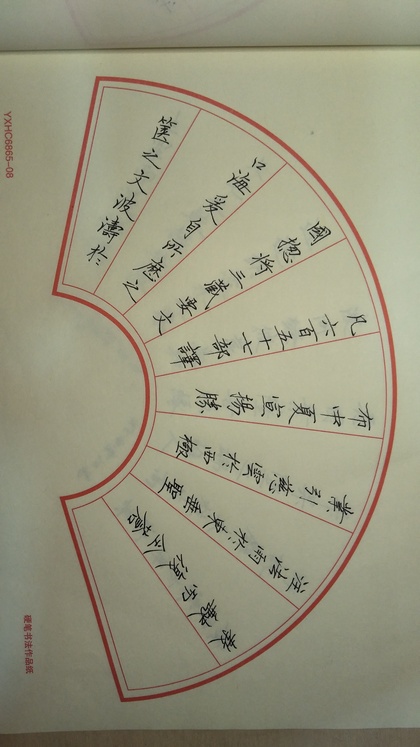 篋之文波濤於
口海爰自所歷之
國揔將三藏要文
凡六百五十七部譯
布中夏宣揚勝
業引慈雲於西極
注法雨於東垂聖
教缺而復全蒼
YXHC6865-08
硬笔书法作品纸